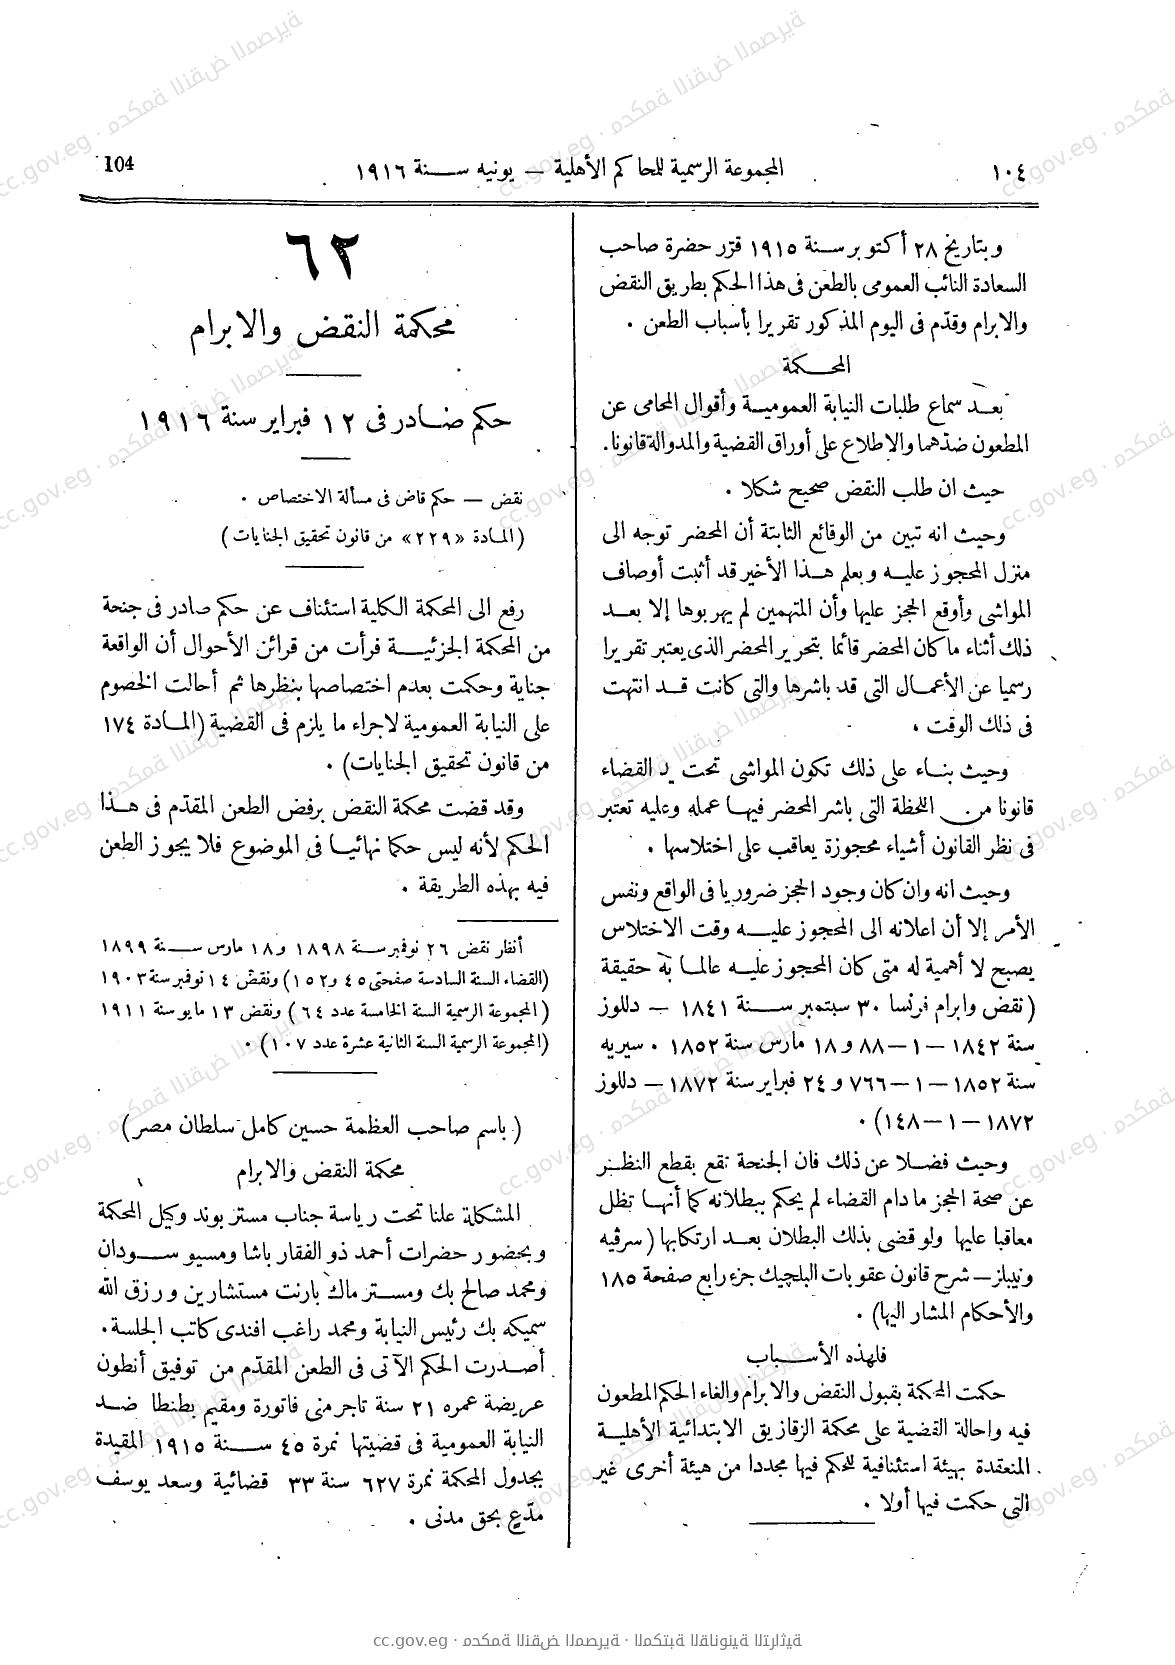 ١٠٤ المجموعة الرسمية للمحاكم الأهلية — يونيه سنة ١٩١٦ 104
وبتاريخ ٢٨ أكتوبر سنة ١٩١٥ قرّر حضرة صاحب
السعادة النائب العمومى بالطعن فى هذا الحكم بطريق النقض
والابرام وقدّم فى اليوم المذكور تقريرا بأسباب الطعن .
المحكمة
بعد سماع طلبات النيابة العمومية وأقوال المحامى عن
المطعون ضدّهما والاطلاع على أوراق القضية والمداولة قانونا .
حيث ان طلب النقض صحيح شكلا .
وحيث انه تبين من الوقائع الثابتة أن المحضر توجه الى
منزل المحجوز عليه وبعلم هذا الأخير قد أثبت أوصاف
المواشى وأوقع الحجز عليها وأن المتهمين لم يهربوها إلا بعد
ذلك أثناء ما كان المحضر قائما بتحرير المحضر الذى يعتبر تقريرا
رسميا عن الأعمال التى قد باشرها والتى كانت قد انتهت
فى ذلك الوقت .
وحيث بناء على ذلك تكون المواشى تحت يد القضاء
قانونا من اللحظة التى باشر المحضر فيها عمله وعليه تعتبر
فى نظر القانون أشياء محجوزة يعاقب على اختلاسها .
وحيث انه وان كان وجود الحجز ضروريا فى الواقع ونفس
الأمر إلا أن اعلانه الى المحجوز عليه وقت الاختلاس
يصبح لا أهمية له متى كان المحجوز عليه عالما به حقيقة
(نقض وابرام فرنسا ٣٠ سبتمبر سنة ١٨٤١ — دللوز
سنة ١٨٤٢ — ١ — ٨٨ و ١٨ مارس سنة ١٨٥٢ . سيريه
سنة ١٨٥٢ — ١ — ٧٦٦ و ٢٤ فبراير سنة ١٨٧٢ — دللوز
١٨٧٢ — ١ — ١٤٨) .
وحيث فضلا عن ذلك فان الجنحة تقع بقطع النظر
عن صحة الحجز ما دام القضاء لم يحكم ببطلانه كما أنها تظل
معاقبا عليها ولو قضى بذلك البطلان بعد ارتكابها (سرڤيه
ونيبلز — شرح قانون عقوبات البلچيك جزء رابع صفحة ١٨٥
والأحكام المشار اليها) .
فلهذه الأسباب
حكمت المحكمة بقبول النقض والابرام والغاء الحكم المطعون
فيه واحالة القضية على محكمة الزقازيق الابتدائية الأهلية
المنعقدة بهيئة استئنافية للحكم فيها مجددا من هيئة أخرى غير
التى حكمت فيها أولا .
٦٢
محكمة النقض والابرام
حكم صادر فى ١٢ فبراير سنة ١٩١٦
نقض — حكم قاض فى مسألة الاختصاص .
(المادة «٢٢٩» من قانون تحقيق الجنايات)
رفع الى المحكمة الكلية استئناف عن حكم صادر فى جنحة
من المحكمة الجزئية فرأت من قرائن الأحوال أن الواقعة
جناية وحكمت بعدم اختصاصها بنظرها ثم أحالت الخصوم
على النيابة العمومية لاجراء ما يلزم فى القضية (المادة ١٧٤
من قانون تحقيق الجنايات) .
وقد قضت محكمة النقض برفض الطعن المقدّم فى هذا
الحكم لأنه ليس حكما نهائيا فى الموضوع فلا يجوز الطعن
فيه بهذه الطريقة .
أنظر نقض ٢٦ نوفمبر سنة ١٨٩٨ و ١٨ مارس سنة ١٨٩٩
(القضاء السنة السادسة صفحتى ٤٥ و ١٥٢) ونقض ١٤ نوفمبر سنة ١٩٠٣
(المجموعة الرسمية السنة الخامسة عدد ٦٤) ونقض ١٣ مايو سنة ١٩١١
(المجموعة الرسمية السنة الثانية عشرة عدد ١٠٧) .
(باسم صاحب العظمة حسين كامل سلطان مصر)
محكمة النقض والابرام
المشكلة علنا تحت رياسة جناب مستر بوند وكيل المحكمة
وبحضور حضرات أحمد ذو الفقار باشا ومسيو سودان
ومحمد صالح بك ومستر ماك بارنت مستشارين ورزق الله
سميكه بك رئيس النيابة ومحمد راغب افندى كاتب الجلسة .
أصدرت الحكم الآتى فى الطعن المقدّم من توفيق أنطون
عريضة عمره ٢١ سنة تاجر منى فاتورة ومقيم بطنطا ضد
النيابة العمومية فى قضيتها نمرة ٤٥ سنة ١٩١٥ المقيدة
بجدول المحكمة نمرة ٦٢٧ سنة ٣٣ قضائية وسعد يوسف
مدّعٍ بحق مدنى .
cc.gov.eg · محكمة النقض المصرية · المكتبة القانونية التراثية